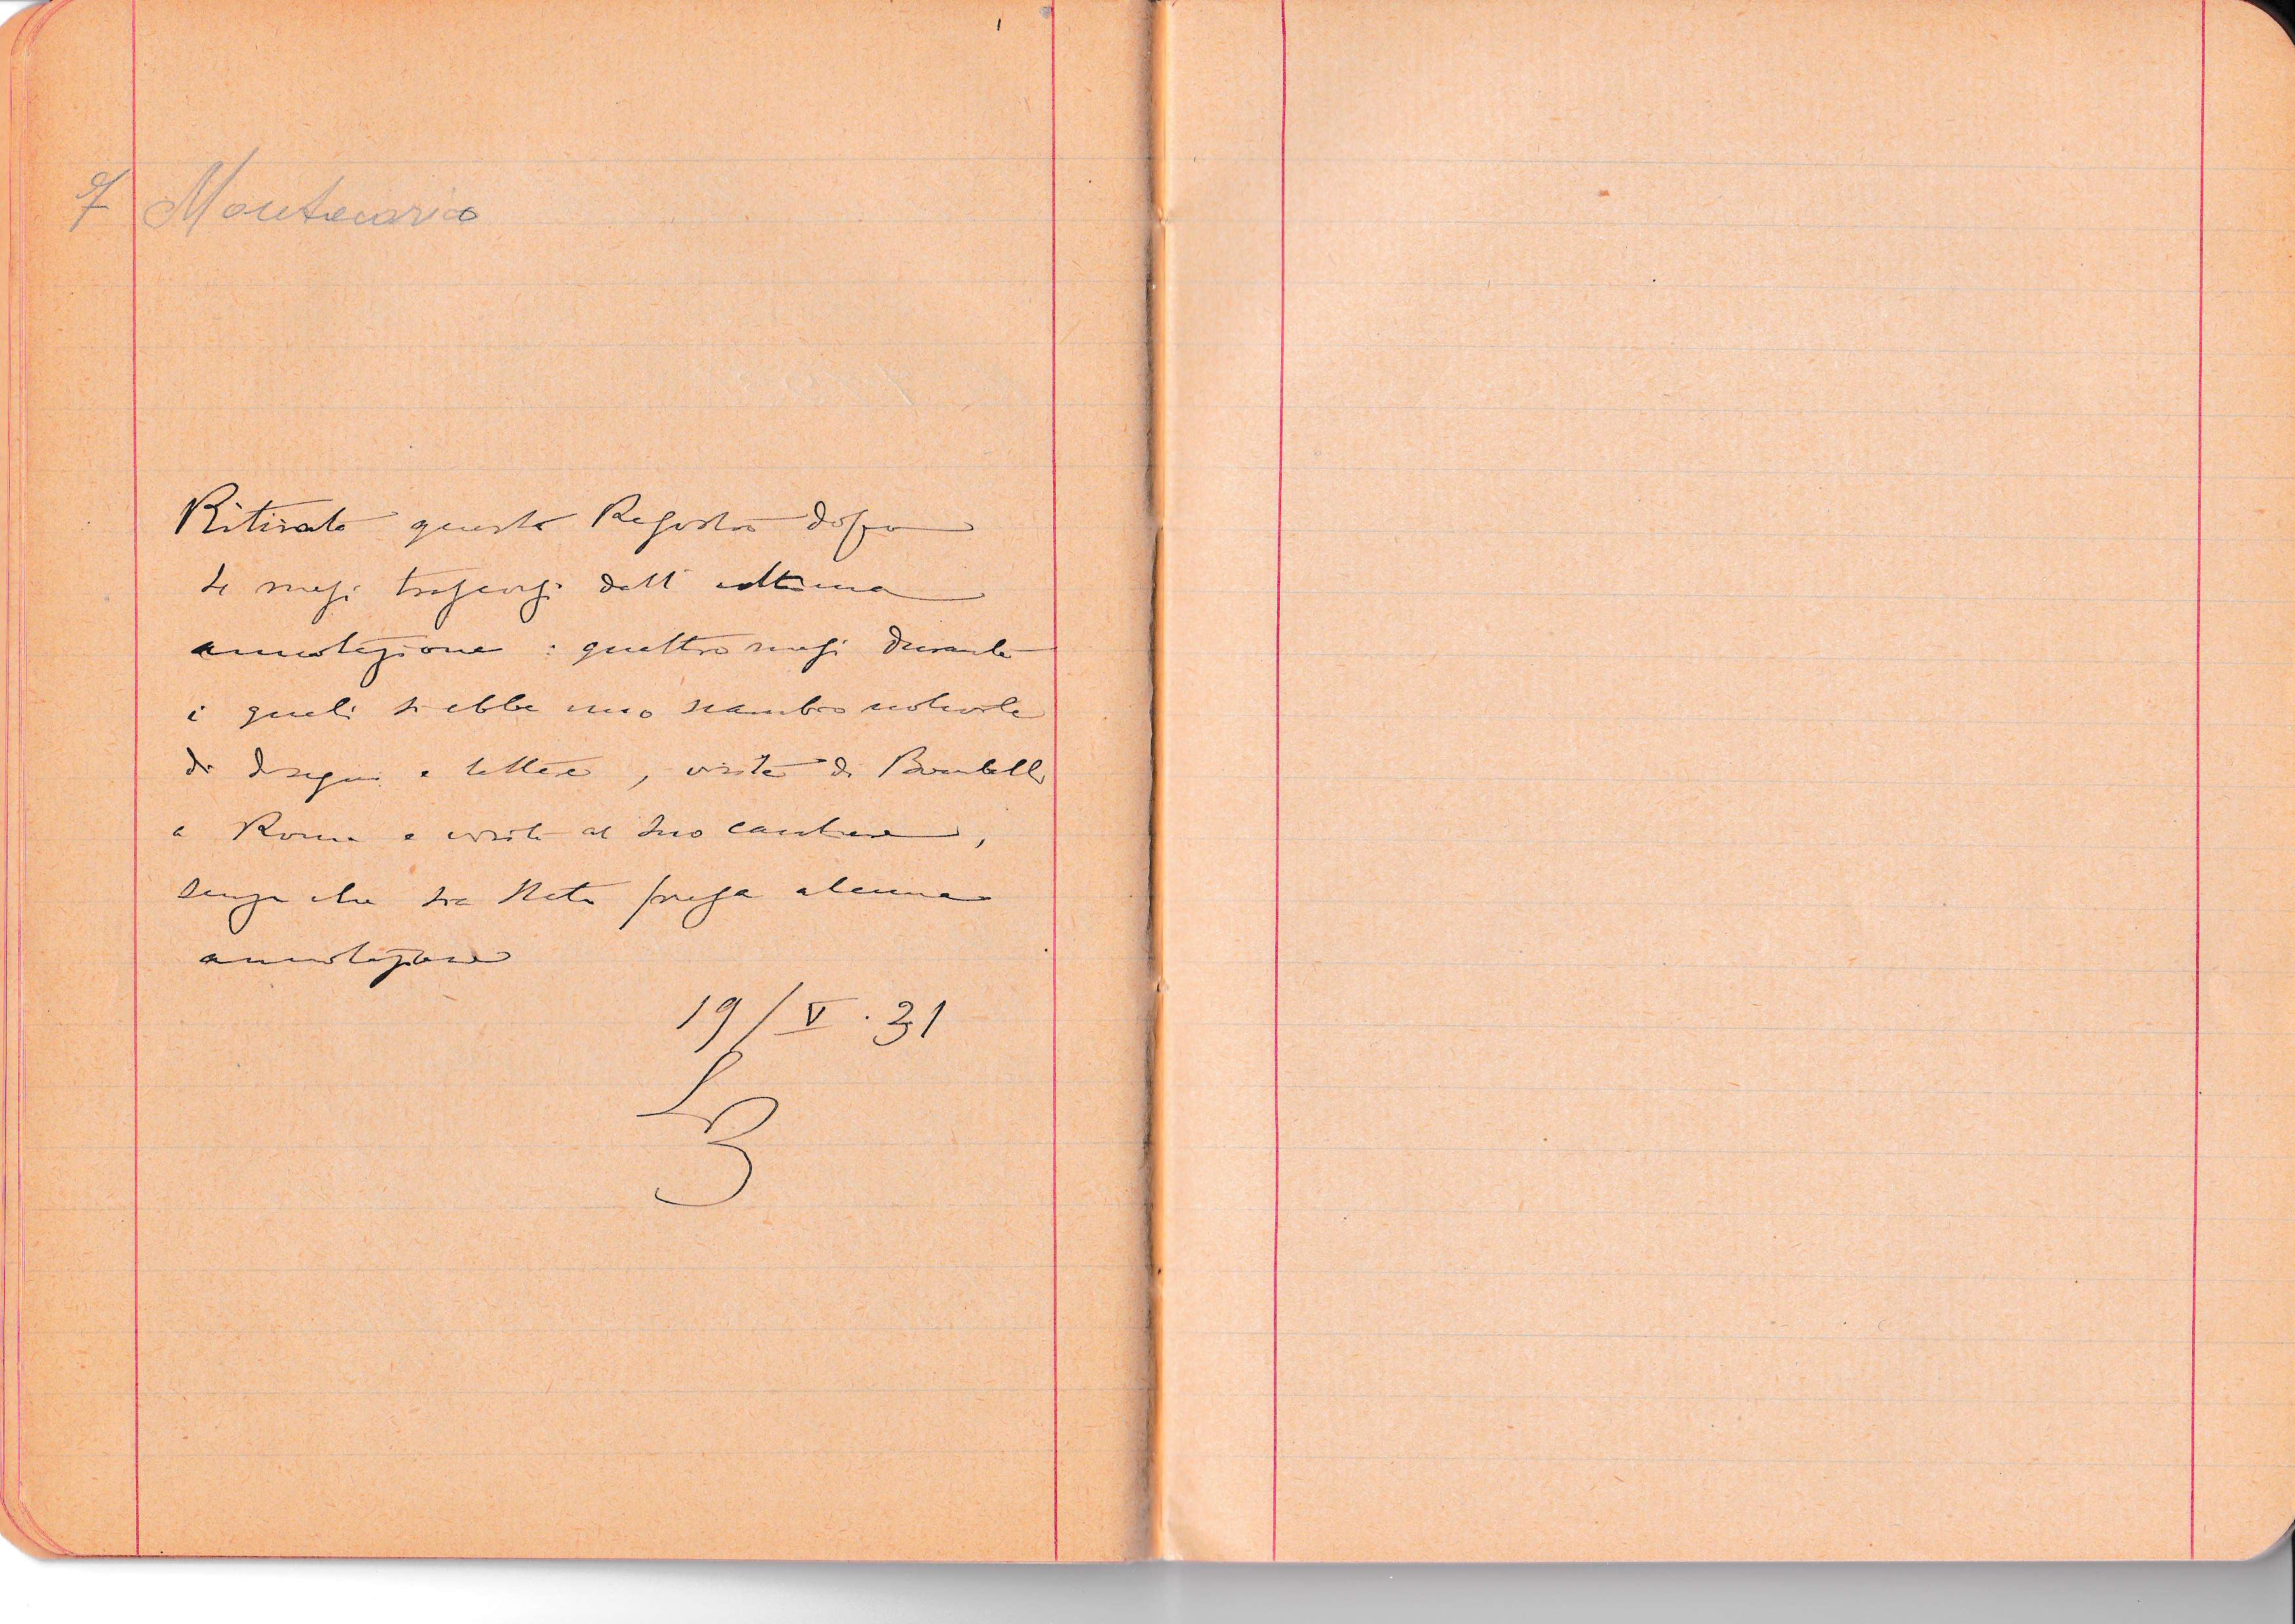 Ritirato questo Registro dopo
4 mesi trascorsi dall'ultima
annotazione : quattro mesi durante
i quali si ebbe uno scambio notevole
di disegni e lettere, visite di
a Roma e visite al suo cantiere,
senza che sia stata presa alcuna
annotazione
19/V.31